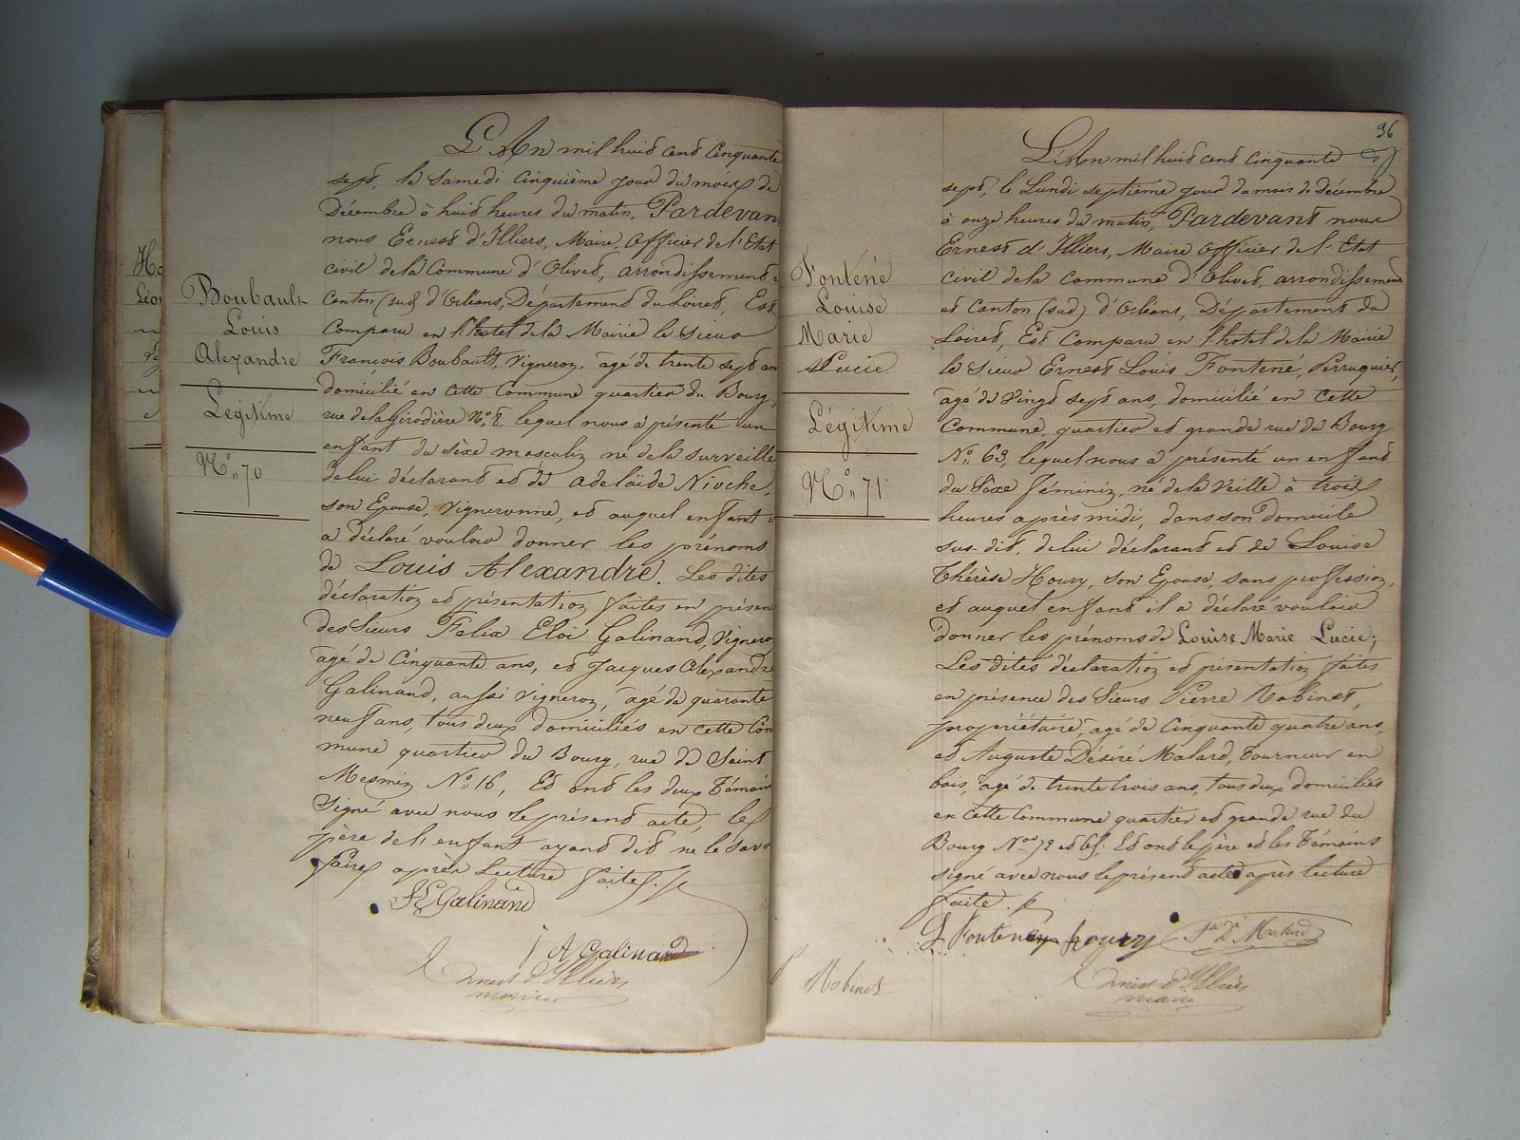 Boubault
Louis
Alexandre
Légitime
N.º 70
L'An mil huit cent cinquante
sept, le Samedi cinquième jour du mois de
Décembre à huit heures du matin, Pardevan
nous Ernest d'Illiers, Maire, officier de l'Etat
civil de la Commune d'Olivet, arrondissement &
Canton (sud) d'Orléans, Département du Loiret, Est
Comparu en l'hotel de la Mairie le Sieur
François Boubault, Vigneron, agé de trente sept an
domicilié en cette Commune quartier du Bourg,
rue de la Girodière Nº lequel nous a présenté un
enfant du sèxe masculin né de la surveille
de lui déclarant et de adelaïde Nioche,
son Epouse, Vigneronne, et auquel enfant i
a déclaré vouloir donner les prénoms
de Louis Alexandre. Les dites
déclaration et présentation faites en présen
des Sieurs Felix Eloi Galinand, Vignero
agé de Cinquante ans, et Jacques Alexandre
Galinand, aussi Vigneron, agé de quarante
neuf ans, tous deux domiciliés en cette Com
mune quartier du Bourg, rue de Saint
Mesmin Nº 16, Et ont les deux Témoins
Signé avec nous le présent acte, le
père de l'enfant ayant dit ne le savo
faire après Lecture faite.
F E Galinand
J A Galinand
Ernest d'Illiers
maire
96
Fontené
Louise
Marie
Lucie
Légitime
N.º 71
L'An mil huit cent cinquante
sept, le Lundi septième jour du mois de Décembre
à onze heures du matin, Pardevant nous
Ernest d'Illiers, Maire officier de l'Etat
civil de la Commune d'Olivet, arrondissement
et Canton (sud) d'Orléans, Département du
Loiret, Est Comparu en l'hotel de la Mairie
le Sieur Ernest Louis Fontené, Perruquier,
agé de Vingt sept ans, domicilié en cette
Commune, quartier et grande rue du Bourg
Nº 63, lequel nous a présenté un enfant
du Sèxe féminin, né de la Veille à trois
heures après midi, dans son domicile
sus-dit, de lui déclarant et de Louise
Thérèse Houry, son Epouse, sans profession,
et auquel enfant il a déclaré vouloir
donner les prénoms de Louise Marie Lucie;
Les dites déclaration et présentation faites
en présence des Sieurs Pierre Robinet,
propriétaire, agé de Cinquante quatre ans,
et Auguste Désiré Malard, Tourneur en
bois, agé de trente trois ans, tous deux domiciliés
en cette Commune quartier et grande rue du
Bourg Nos et Et ont le père et les Témoins
signé avec nous le présent acte après lecture
faite.
Fonteney houry
Malard
Robinet
Ernest d'Illiers
maire